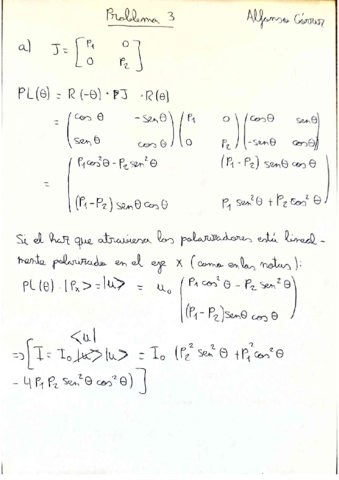 Problema 3
a) J = [P₁ 0
0 P₂]
PL(θ) = R(-θ) · J · R(θ)
= (cos θ -sen θ
sen θ cos θ) (P₁ 0
0 P₂) (cos θ sen θ
-sen θ cos θ)
= (P₁cos²θ - P₂sen²θ (P₁-P₂) senθ cos θ
(P₁-P₂) senθ cosθ P₁ sen²θ + P₂ cos²θ)
Si el haz que atraviesa los polarizadores está lineal-
mente polarizado en el eje x (como en las notas):
PL(θ) · |Pₓ> = |u> = u₀ (P₁ cos²θ - P₂ sen²θ
(P₁-P₂) senθ cosθ)
<u|
=> [I = I₀ |u> = I₀ (P₂² sen²θ + P₁² cos²θ
- 4P₁P₂ sen²θ cos²θ)]